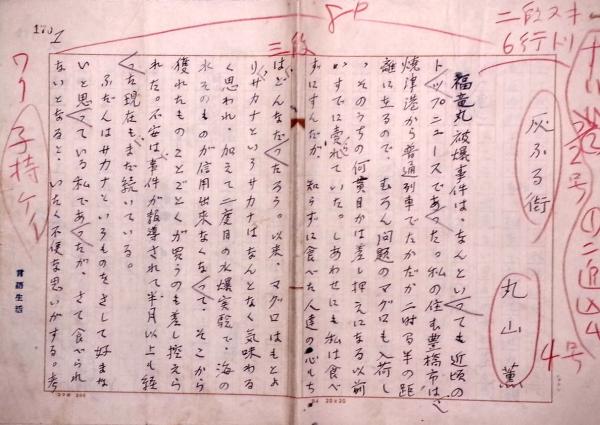 170
1
8P
三段
二段ヌキ
6行ドリ
2号
4号
ワク子持ケイ
灰ふる街
丸山薫
福竜丸被爆事件は、なんといっても近頃の
トップニュースであった。私の住む豊橋市は、
焼津港から普通列車でたかだか二時る半の距
離になるので、むろん問題のマグロも入荷し
、すでに売れていた。しあわせにも私は食べ
、そのうちの何貫目かは差し押えになる以前
ずにすんだが、知らずに食べた人達の心もち
はどんなだったろう。以来、マグロはもとよ
りサカナというサカナはなんとなく気味わる
く思われ、加えて二度目の水爆実験で、海の
水そのものが信用出来なくなって、そこから
獲れたものことごとくが買うのも差し控えら
れた。不安は事件が報導されて半月以上も経
った現在もまだ続いている。
ふだんはサカナというものをさして好まな
いと思っている私であったが、さて食べられ
ないとなると、いたく不便な思いがする。考
言語生活
20×20